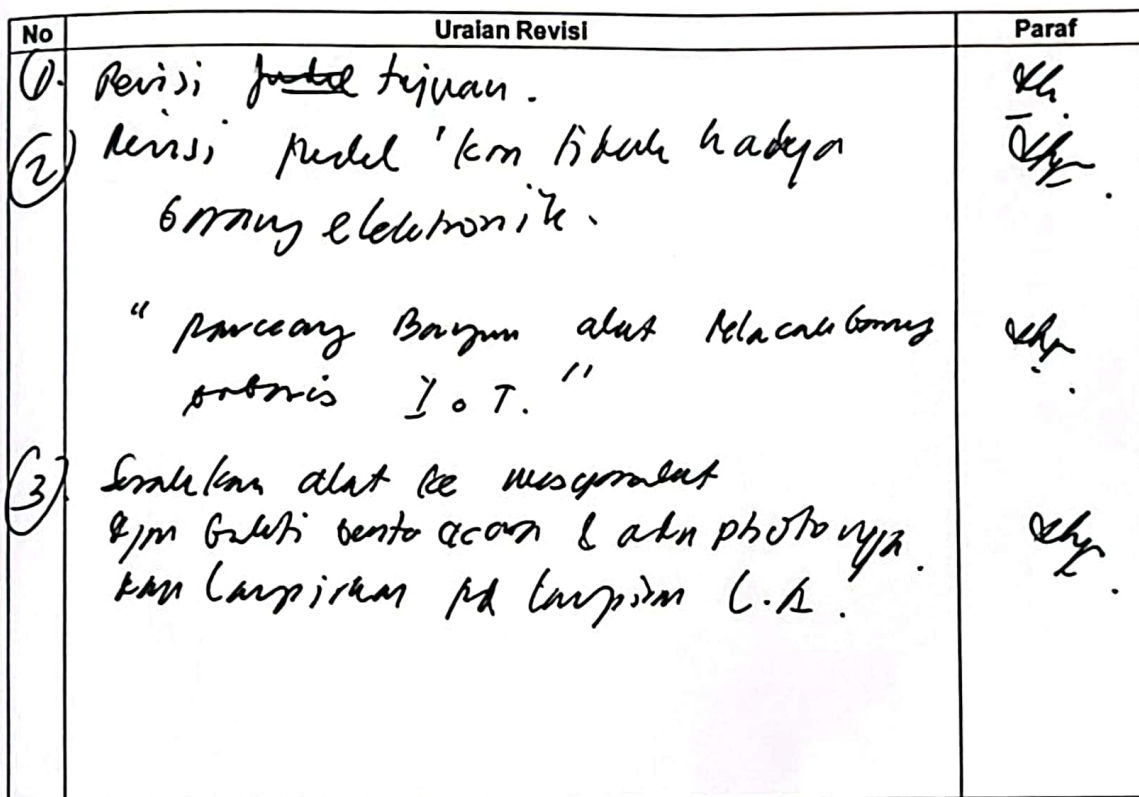 No Uraian Revisi Paraf
1. Revisi tujuan.
2 Revisi judul 'krn tidak hadnya
barang elektronik.
"Rancang Bangun alat Pelacak barang
berbasis I o T."
3. Serahkan alat ke masyarakat
dgn bukti berita acara & ada photonya.
kmn lampirkan pd lampiran L.A.